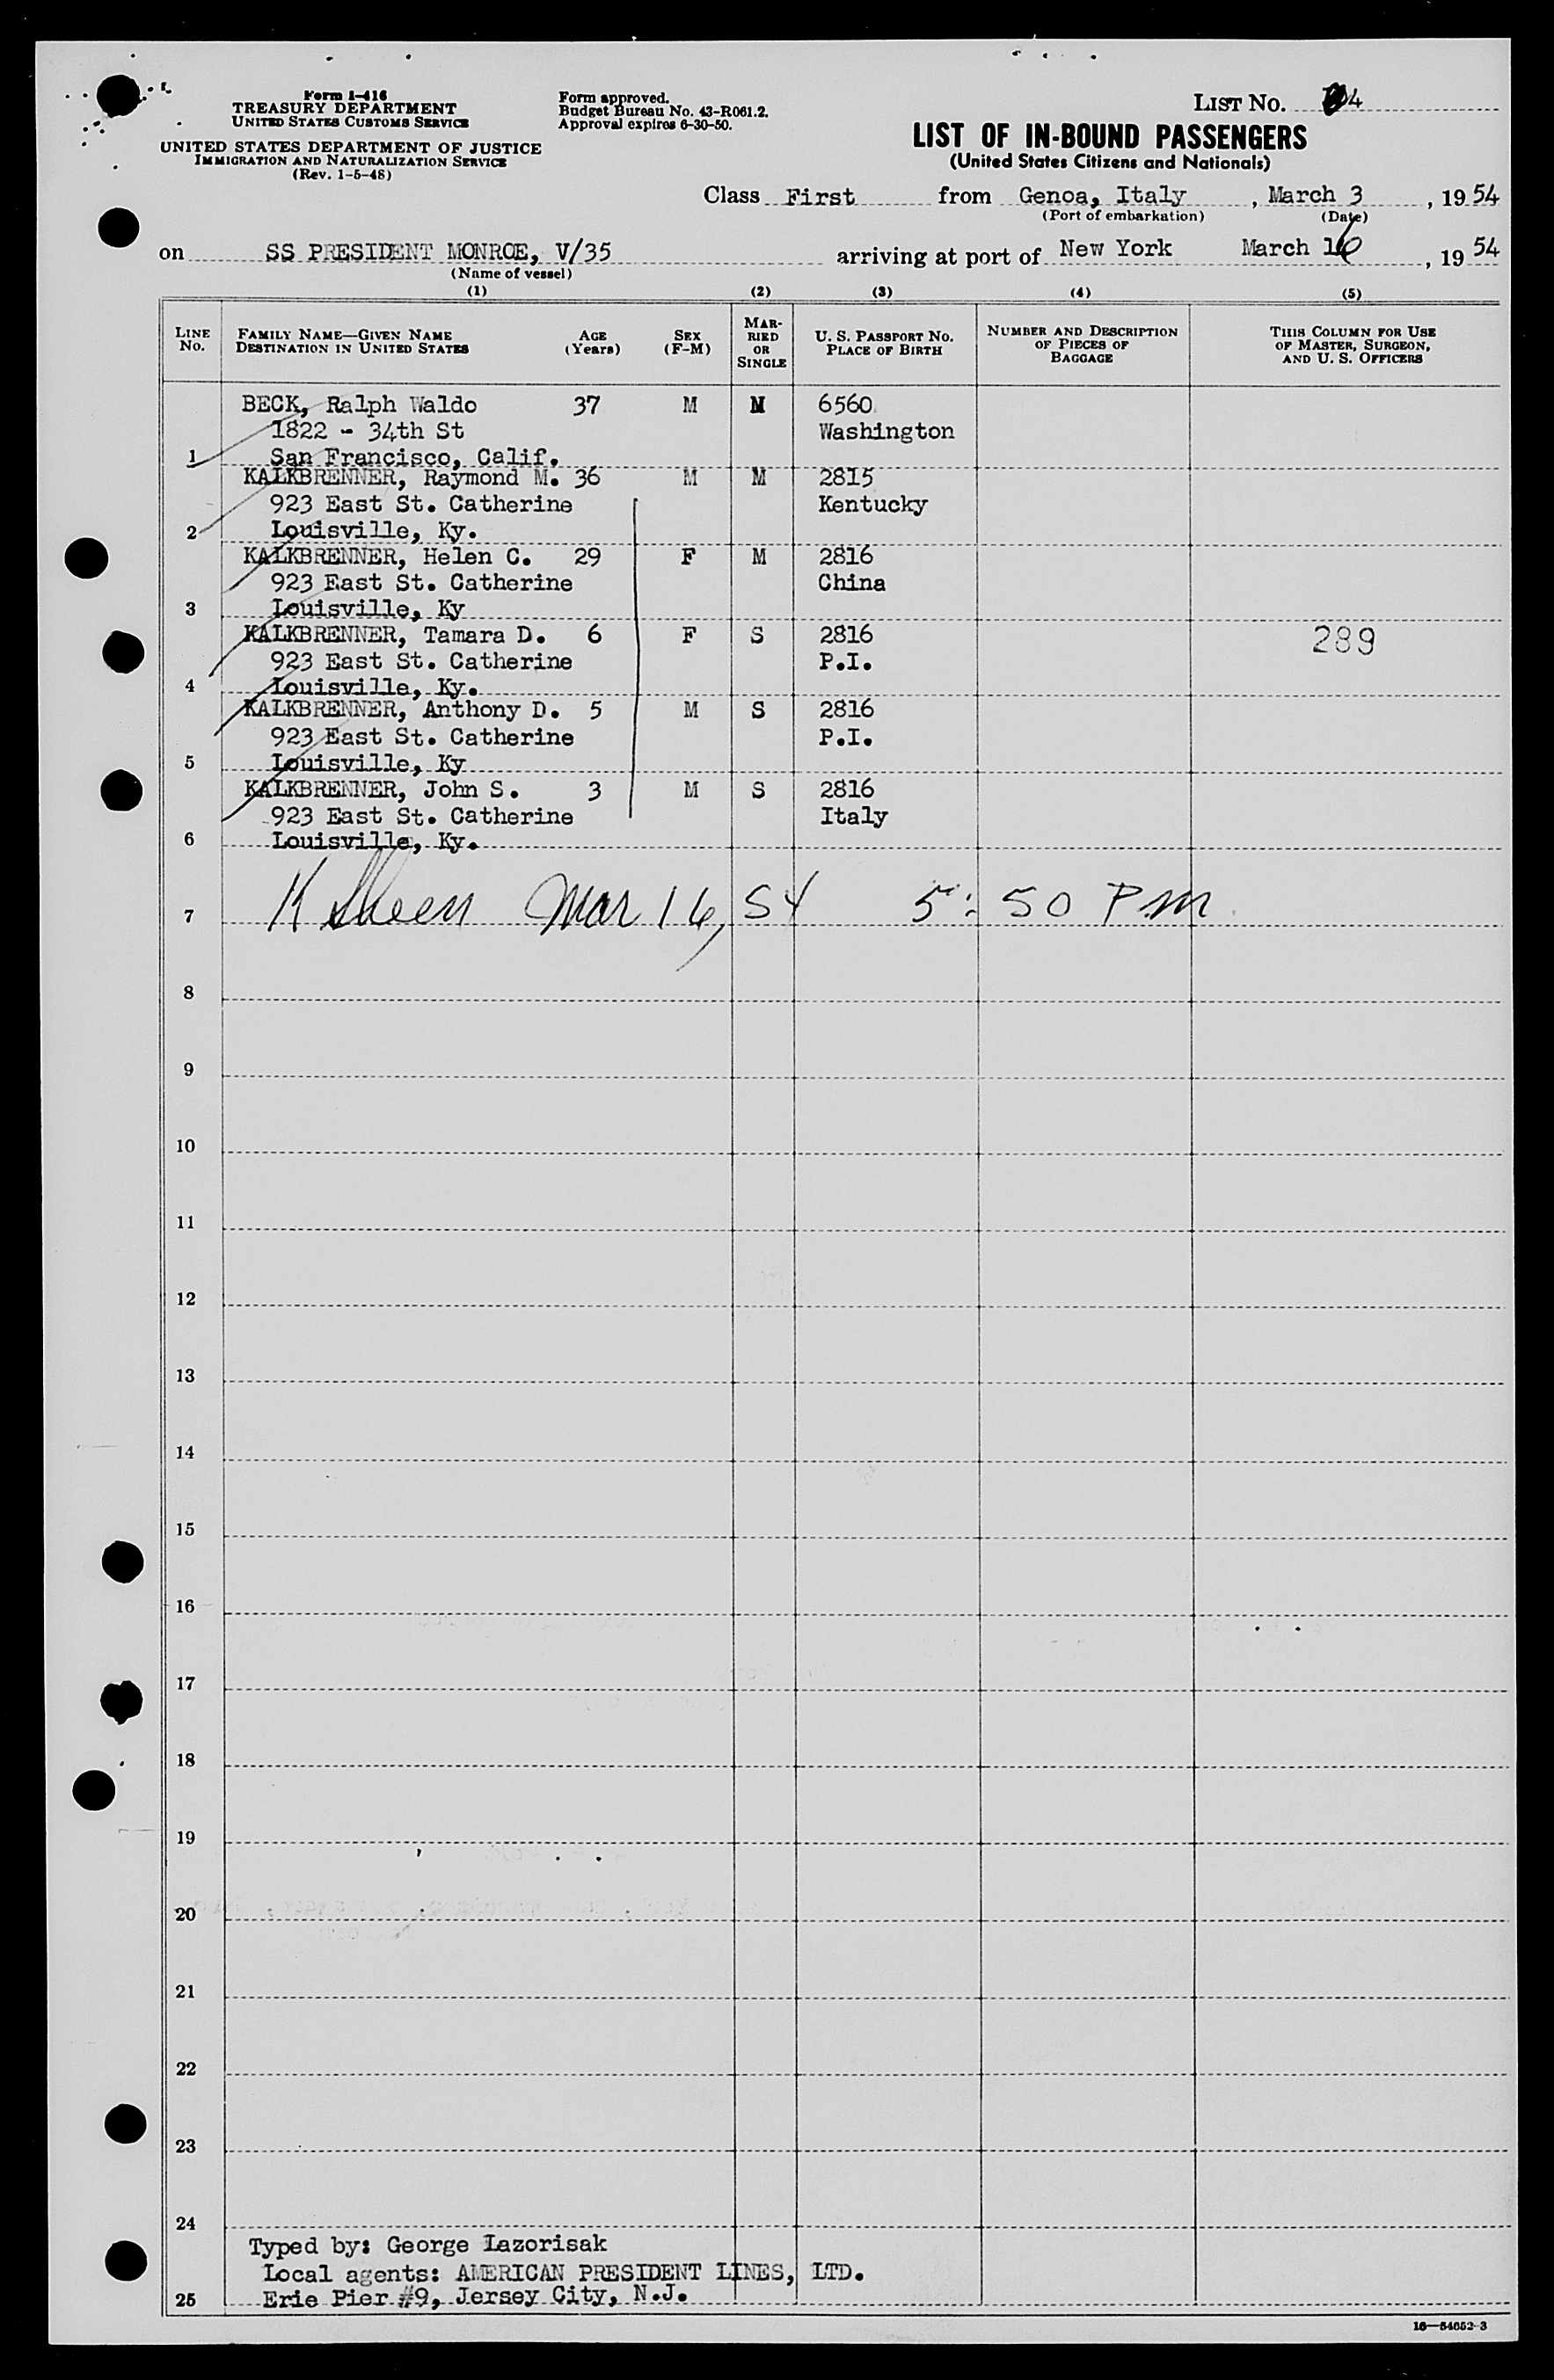 Form I-416
TREASURY DEPARTMENT
UNITED STATES CUSTOMS SERVICE
UNITED STATES DEPARTMENT OF JUSTICE
IMMIGRATION AND NATURALIZATION SERVICE
(Rev. 1-5-48)
Form approved.
Budget Bureau No. 43-R061.2.
Approval expires 6-30-50.
LIST No. 4
LIST OF IN-BOUND PASSENGERS
(United States Citizens and Nationals)
Class First from Genoa, Italy, March 3, 1954
(Port of embarkation) (Date)
on SS PRESIDENT MONROE, V/35 arriving at port of New York March 16, 1954
(Name of vessel)
(1) (2) (3) (4) (5)
LINE No. FAMILY NAME—GIVEN NAME DESTINATION IN UNITED STATES AGE (Years) SEX (F-M) MARRIED OR SINGLE U. S. PASSPORT No. PLACE OF BIRTH NUMBER AND DESCRIPTION OF PIECES OF BAGGAGE THIS COLUMN FOR USE OF MASTER, SURGEON, AND U. S. OFFICERS
BECK, Ralph Waldo 37 M M 6560
1822 - 34th St Washington
1 San Francisco, Calif.
KALKBRENNER, Raymond M. 36 M M 2815
923 East St. Catherine Kentucky
2 Louisville, Ky.
KALKBRENNER, Helen C. 29 F M 2816
923 East St. Catherine China
3 Louisville, Ky
KALKBRENNER, Tamara D. 6 F S 2816 289
923 East St. Catherine P.I.
4 Louisville, Ky.
KALKBRENNER, Anthony D. 5 M S 2816
923 East St. Catherine P.I.
5 Louisville, Ky
KALKBRENNER, John S. 3 M S 2816
923 East St. Catherine Italy
6 Louisville, Ky.
7 Mar 16, 54 5:50 PM
8
9
10
11
12
13
14
15
16
17
18
19
20
21
22
23
24
Typed by: George Lazorisak
Local agents: AMERICAN PRESIDENT LINES, LTD.
25 Erie Pier #9, Jersey City, N.J.
16—54652-3